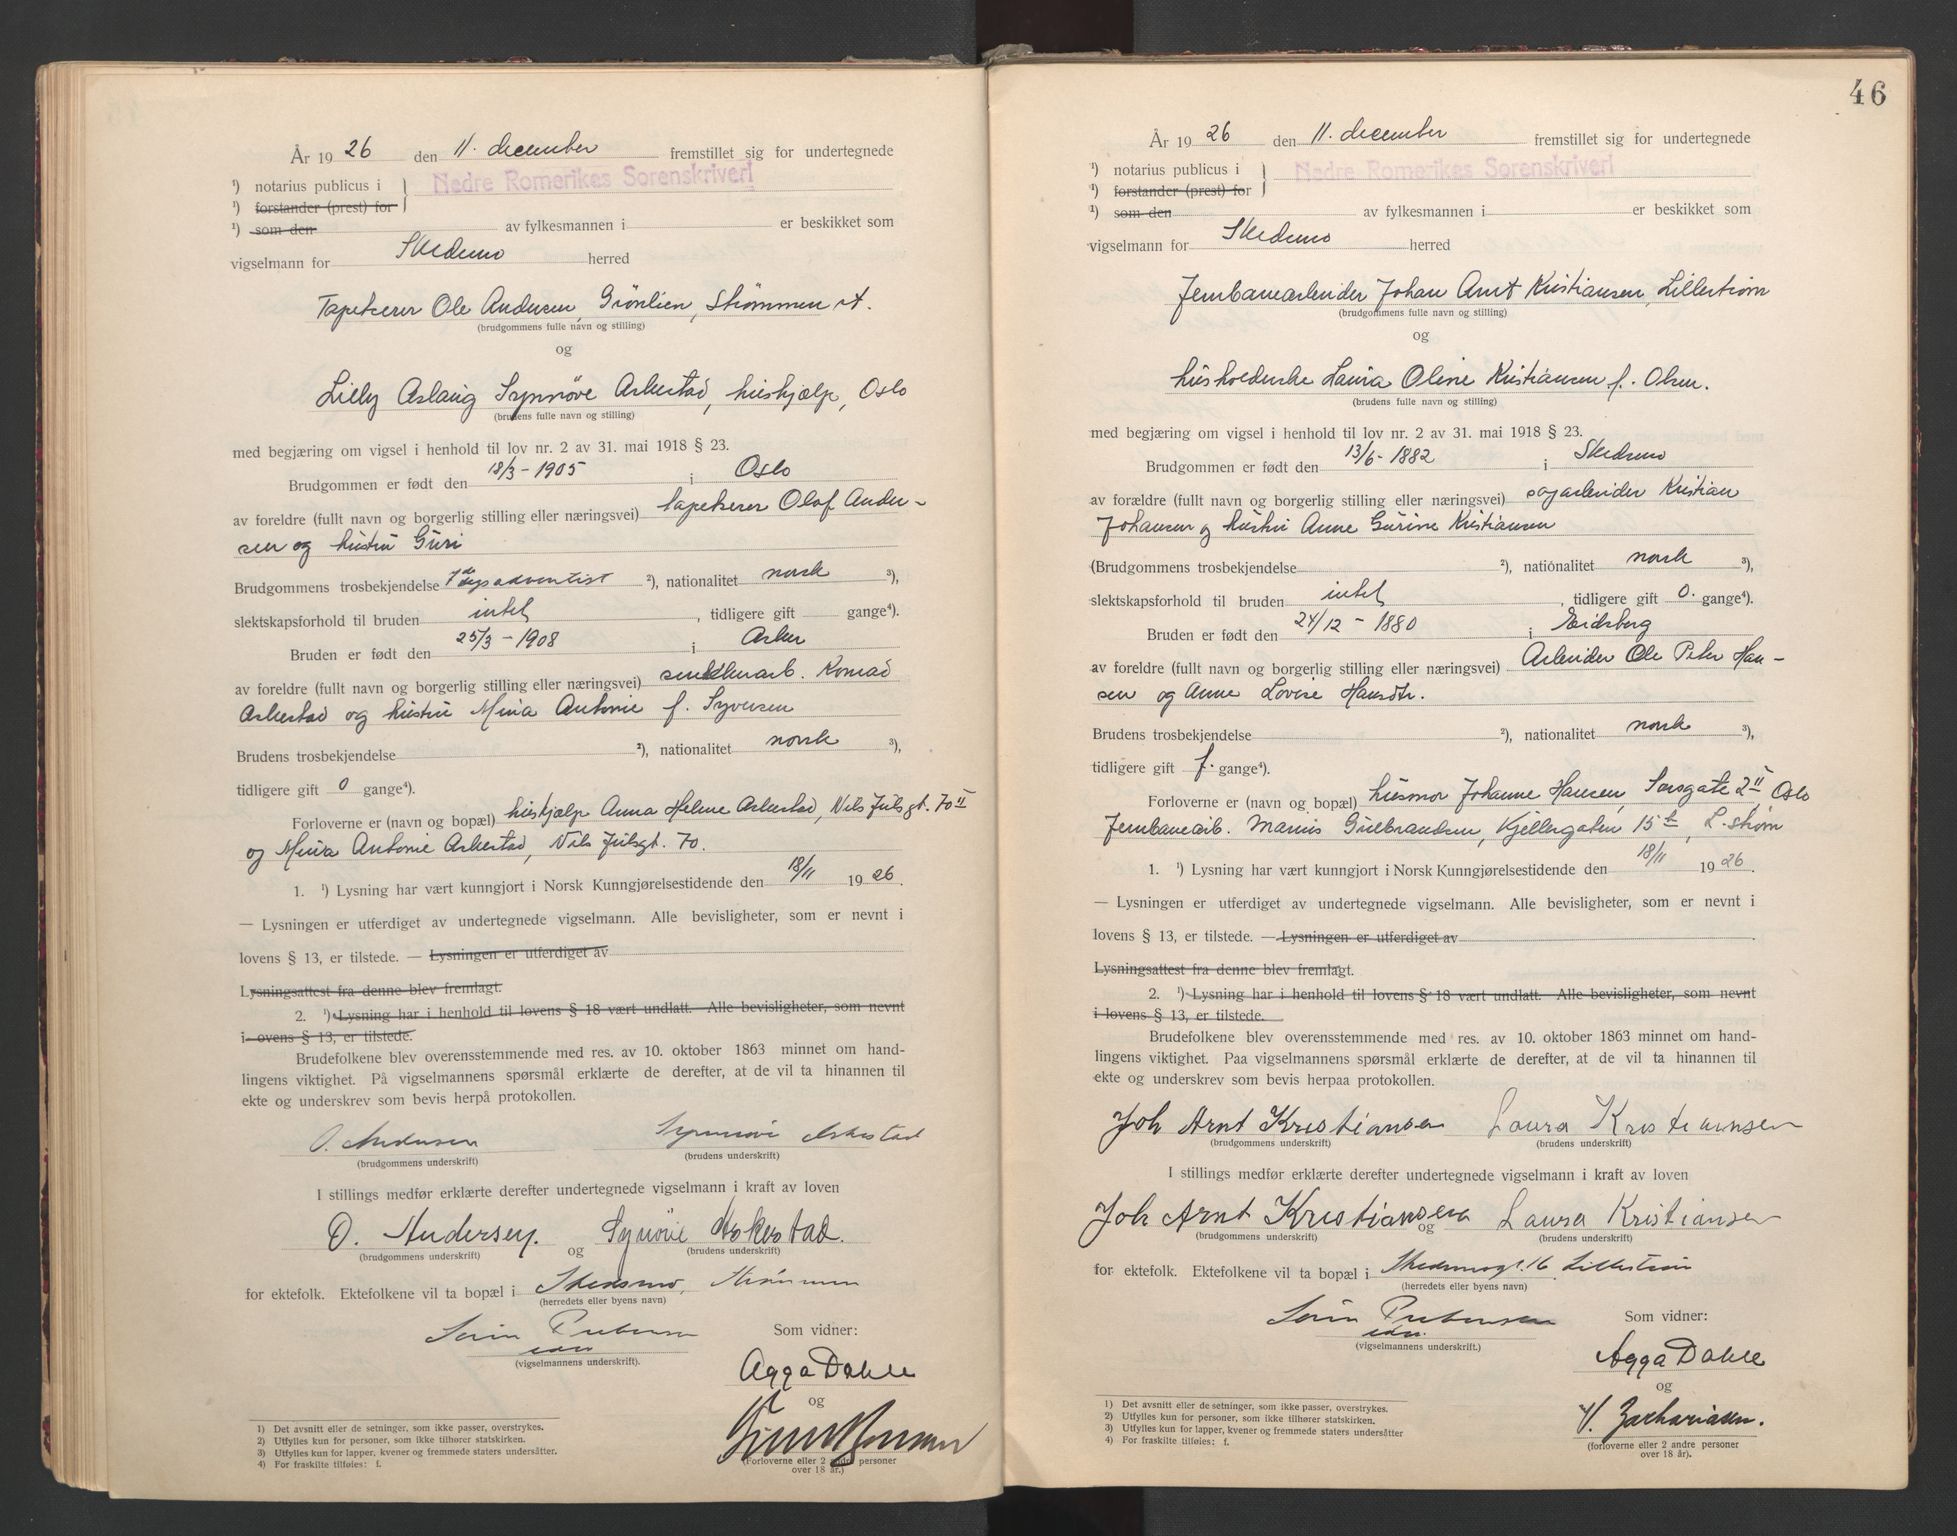 År 1926 den 11. december fremstillet sig for undertegnede
¹) notarius publicus i Nedre Romerikes Sorenskriveri
¹) forstander (prest) for
¹) som den av fylkesmannen i er beskikket som
vigselmann for Skedsmo herred
Tapetserer Ole Andersen, Grönlien, Strømmen st.
(brudgommens fulle navn og stilling)
og
Lilly Aslaug Synnöve Askestad, hushjælp, Oslo
(brudens fulle navn og stilling)
med begjæring om vigsel i henhold til lov nr. 2 av 31. mai 1918 § 23.
Brudgommen er født den 18/3 - 1905 i Oslo
av foreldre (fullt navn og borgerlig stilling eller næringsvei) tapetserer Olaf Ander-
sen og hustru Guri
Brudgommens trosbekjendelse 7de dags adventist ²), nationalitet norsk ³),
slektskapsforhold til bruden intet, tidligere gift gange⁴).
Bruden er født den 25/3 - 1908 i Asker
av foreldre (fullt navn og borgerlig stilling eller næringsvei) Konrad
Askestad og hustru Mina Antonie f. Syversen
Brudens trosbekjendelse ²), nationalitet norsk ³),
tidligere gift 0 gange⁴).
Forloverne er (navn og bopæl) hushjælp Anna Helene Askestad, Nils Julsgt. 70 II
og Mina Antonie Askestad, Nils Julsgt. 70.
1. ¹) Lysning har vært kunngjort i Norsk Kunngjørelsestidende den 18/11 1926.
— Lysningen er utferdiget av undertegnede vigselmann. Alle bevisligheter, som er nevnt i
lovens § 13, er tilstede. — Lysningen er utferdiget av
Lysningsattest fra denne blev fremlagt.
2. ¹) Lysning har i henhold til lovens § 18 vært undlatt. Alle bevisligheter, som nevnt
i ovens § 13, er tilstede.
Brudefolkene blev overensstemmende med res. av 10. oktober 1863 minnet om hand-
lingens viktighet. På vigselmannens spørsmål erklærte de derefter, at de vil ta hinannen til
ekte og underskrev som bevis herpå protokollen.
O. Andersen Synnöve Askestad
(brudgommens underskrift) (brudens underskrift)
I stillings medfør erklærte derefter undertegnede vigselmann i kraft av loven
O. Andersen. og Synöve Askestad.
(brudgommens underskrift) (brudens underskrift)
for ektefolk. Ektefolkene vil ta bopæl i Skedsmo, Strömmen
(herredets eller byens navn)
Sörin Prebensen Som vidner:
edsv
(vigselmannens underskrift).
Agga Dahle
og
(Forloverne eller 2 andre personer
over 18 år.)
1) Det avsnitt eller de setninger, som ikke passer, overstrykes.
2) Utfylles kun for personer, som ikke tilhører statskirken.
3) Utfylles kun for lapper, kvener og fremmede staters undersåtter.
4) For fraskilte tilføies: f.
46
År 1926 den 11. december fremstillet sig for undertegnede
¹) notarius publicus i Nedre Romerikes Sorenskriveri
¹) forstander (prest) for
¹) som den av fylkesmannen i er beskikket som
vigselmann for Skedsmo herred
Jernbanearbeider Johan Arnt Kristiansen, Lillestrøm
(brudgommens fulle navn og stilling)
og
husholderske Laura Oline Kristiansen f. Olsen.
(brudens fulle navn og stilling)
med begjæring om vigsel i henhold til lov nr. 2 av 31. mai 1918 § 23.
Brudgommen er født den 13/6 - 1882 i Skedsmo
av forældre (fullt navn og borgerlig stilling eller næringsvei) sagarbeider Kristian
Johansen og hustru Anne Gurine Kristiansen
(Brudgommens trosbekjendelse ²), nationalitet norsk ³),
slektskapsforhold til bruden intet, tidligere gift 0. gange⁴).
Bruden er født den 24/12 - 1880 i Eidsberg
av foreldre (fullt navn og borgerlig stilling eller næringsvei) Arbeider Ole Peter Han-
sen og Anne Lovise Hansdtr.
Brudens trosbekjendelse ²), nationalitet norsk ³),
tidligere gift f. gange⁴).
Forloverne er (navn og bopæl) husmor Johanne Hansen, Sarsgate 2 II Oslo
Jernbanearb. Marius Gulbrandsen, Kjellergaten 15 b, L.strøm
1. ¹) Lysning har vært kunngjort i Norsk Kunngjørelsestidende den 18/11 1926.
— Lysningen er utferdiget av undertegnede vigselmann. Alle bevisligheter, som er nevnt i
lovens § 13, er tilstede. — Lysningen er utferdiget av
Lysningsattest fra denne blev fremlagt.
2. ¹) Lysning har i henhold til lovens § 18 vært undlatt. Alle bevisligheter, som nevnt
i lovens § 13, er tilstede.
Brudefolkene blev overensstemmende med res. av 10. oktober 1863 minnet om hand-
lingens viktighet. Paa vigselmannens spørsmål erklærte de derefter, at de vil ta hinannen til
ekte og underskrev som bevis herpaa protokollen.
Joh Arnt Kristiansen Laura Kristiansen
(brudgommens underskrift) (brudens underskrift)
I stillings medfør erklærte derefter undertegnede vigselmann i kraft av loven
Joh Arnt Kristiansen og Laura Kristiansen
(brudgommens underskrift) (brudens underskrift)
for ektefolk. Ektefolkene vil ta bopæl i Skedsmogt. 16 Lillestrøm
(herredets eller byens navn)
Sörin Prebensen Som vidner:
edsv.
(vigselmannens underskrift.)
Agga Dahle
og
V. Zachariassen.
(forloverne eller 2 andre personer
over 18 år).
1) Det avsnitt eller de setninger, som ikke passer, overstrykes.
2) Utfylles kun for personer, som ikke tilhører statskirken.
3) Utfylles kun for lapper, kvener og fremmede staters undersåtter
4) For fraskilte tilføies: f.